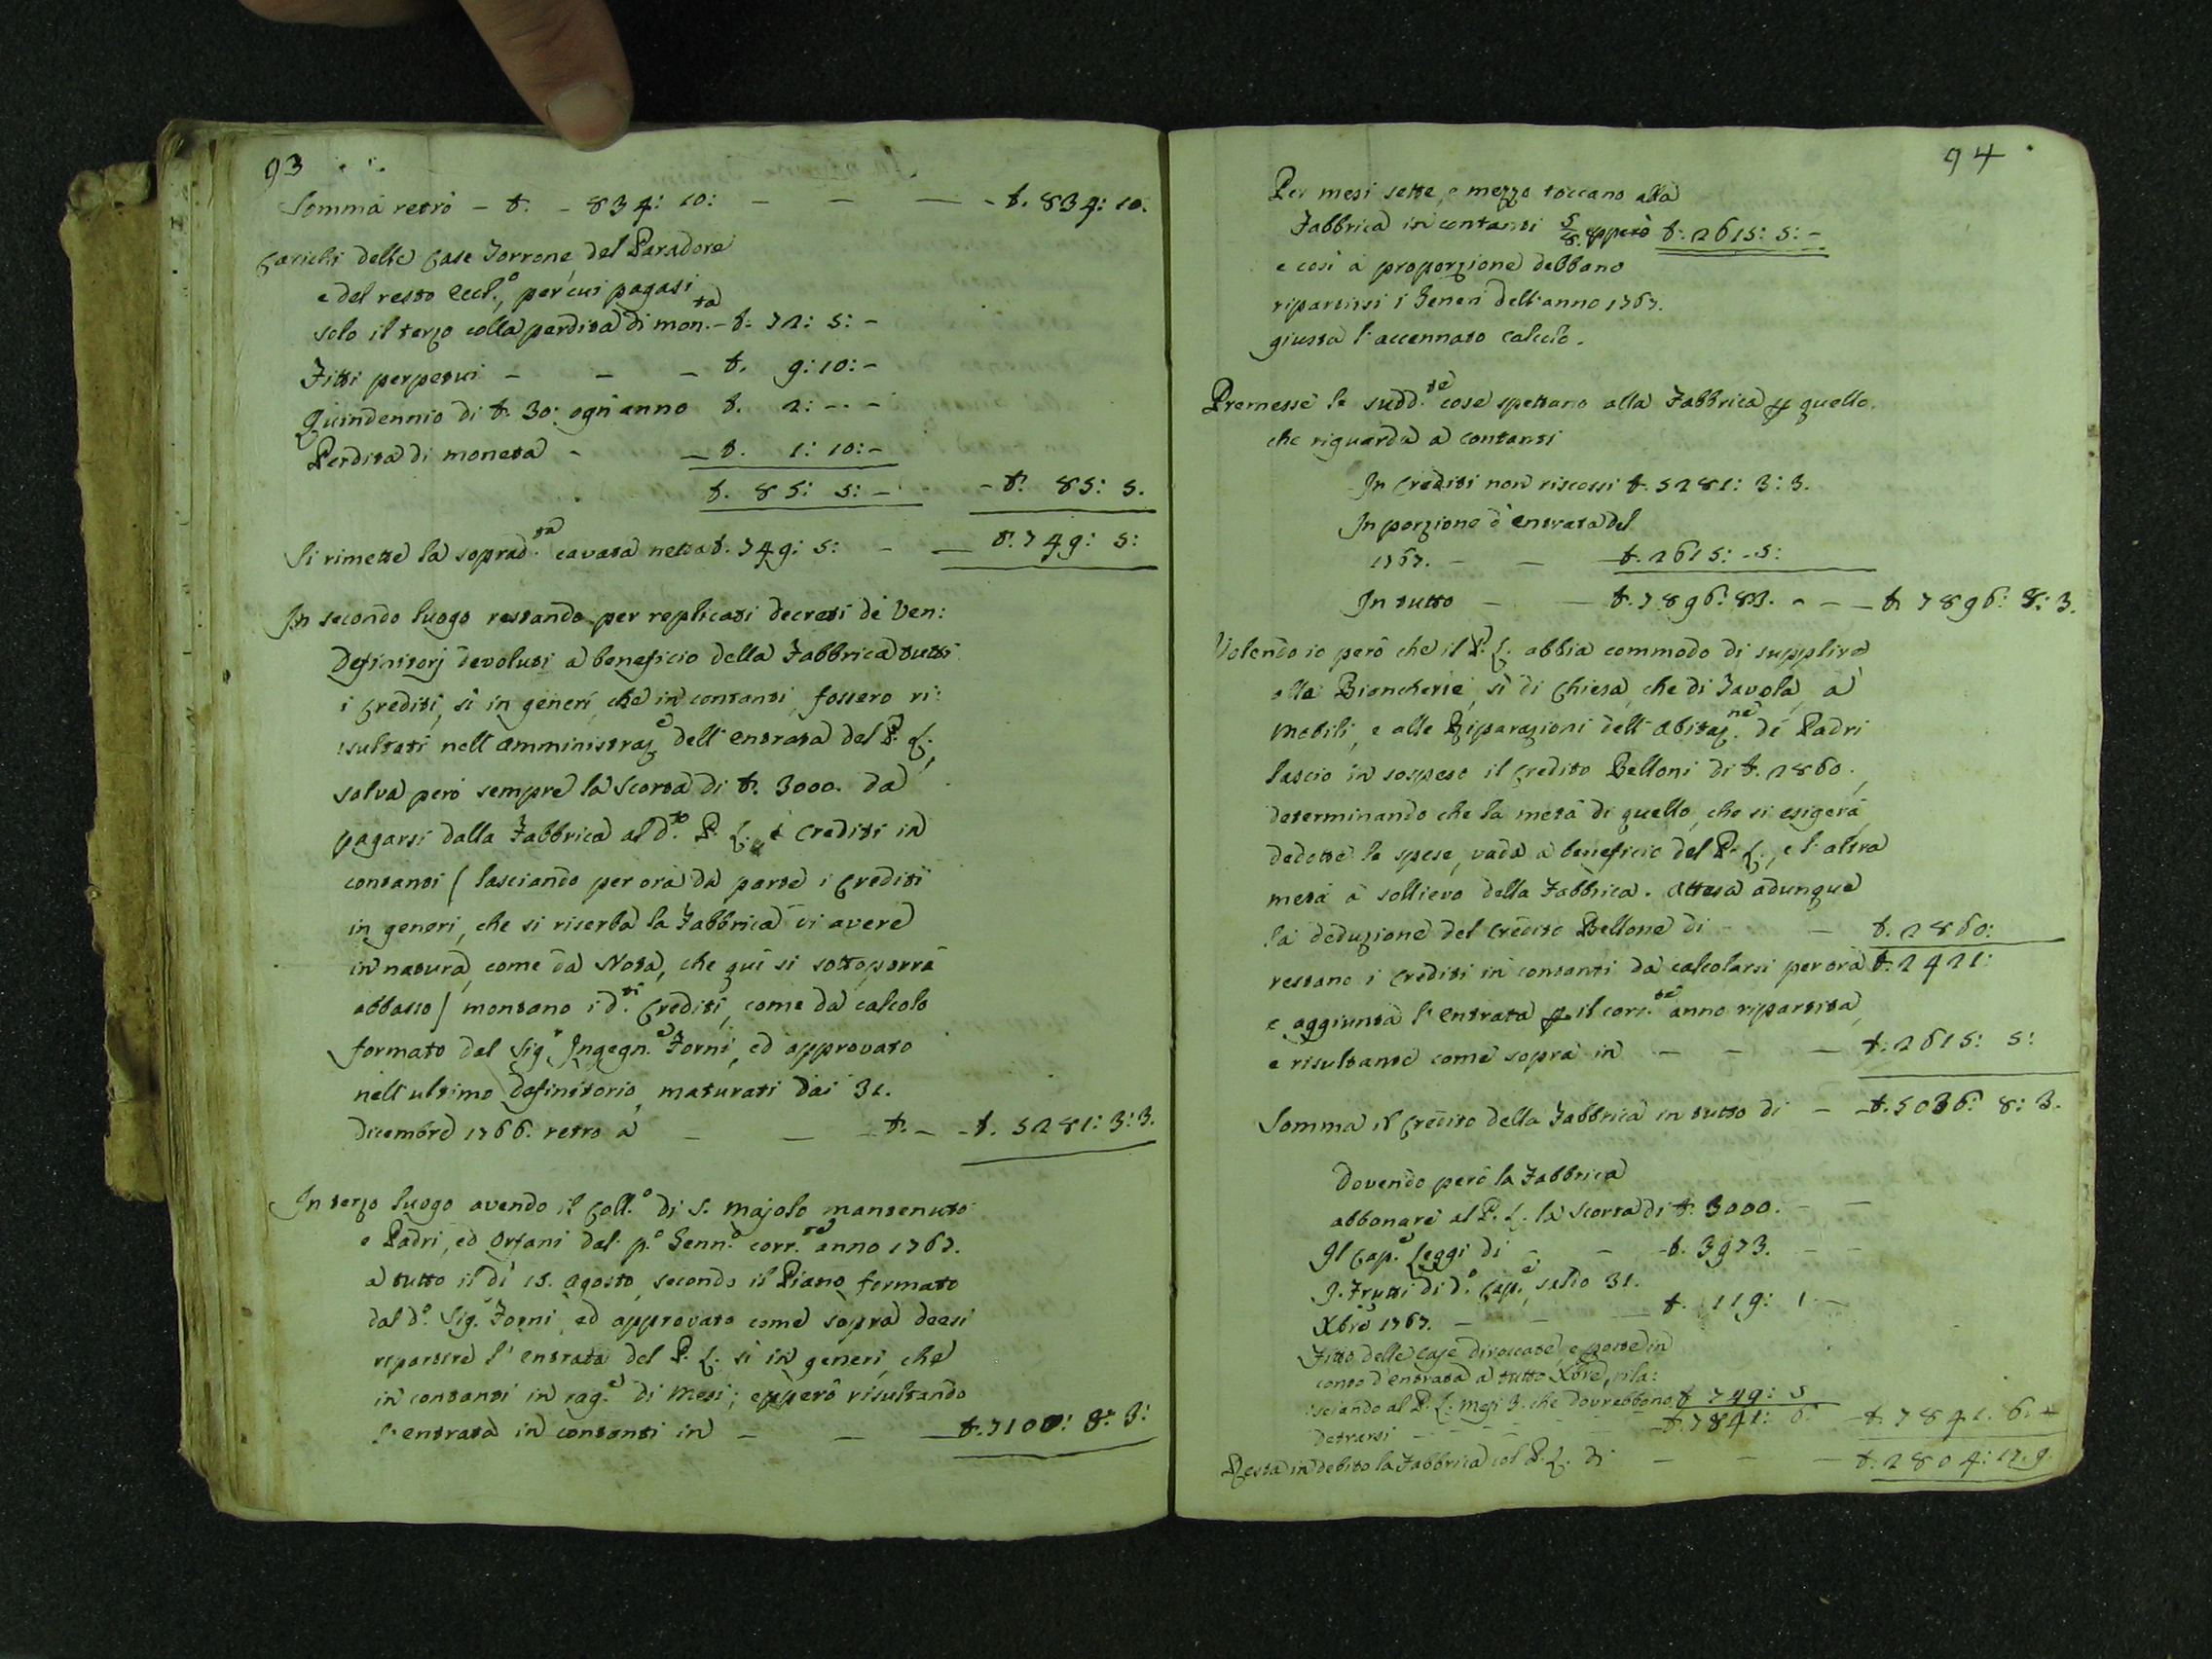 93
Somma retro - £. - 834: 10: - - - £. 834: 10.
Carichi delle Case Torrone, del Paradore
e del resto Eccl.o, per cui pagasi
solo il terzo colla perdita di mon.ta - £. 72: 5: -
Fitti perpetui - - - £. 9: 10: -
Quindennio di £. 30: ogn'anno £. 2: - -
Perdita di moneta - - £. 1: 10: -
£. 85: 5: - - £. 85: 5.
Si rimette la soprad.ta cavata netta £. 749: 5: - - £. 749: 5:
In secondo luogo restando per replicati decreti de Ven:
Definitorj devoluti a beneficio della Fabbrica tutti
i Crediti, sì in generi, che in contanti, fossero ri:
:sultati nell'amministraz.e dell'entrata del P. L.,
salva però sempre la scorta di £. 3000. da
pagarsi dalla Fabbrica al d.to P. L. i Crediti in
contanti ( lasciando per ora da parte i Crediti
in generi, che si riserba la Fabbrica di avere
in natura, come da Nota, che quì si sottoporrà
abbasso ) montano i d.ti Crediti, come da calcolo
formato dal Sig.r Ingegn.e Forni, ed approvato
nell'ultimo Definitorio, maturati dai 31.
Dicembre 1766. retro a - - - £. - - £. 5281: 3: 3.
In terzo luogo avendo il Coll.o di S. Majolo mantenuto
e Padri, ed Orfani dal p.o Genn.o corr.te anno 1767.
a tutto il dì 15. Agosto, secondo il Piano formato
dal d.o Sig.r Forni, ed approvato come sopra deesi
ripartire l'entrata del P. L. sì in generi, che
in contanti in rag.e di Mesi; epperò risultando
l'entrata in contanti in - - - £. 7100: 8: 3:
94
Per mesi sette, e mezzo toccano alla
Fabbrica in contanti 5/8. epperò £. 2615: 5: -
e così a proporzione debbano
ripartirsi i Generi dell'anno 1767.
giusta l'accennato calcolo.
Premesse le sudd.te cose spettano alla Fabbrica per quello,
che riguarda a contanti
In Crediti non riscossi £. 5281: 3: 3.
In porzione d'entrata del
1767. - - £. 2615: - 5:
In tutto - - £. 7896: 8 3. - - - £. 7896: 8: 3.
Volendo io però che il P. L. abbia commodo di supplire
alle Biancherie, sì di Chiesa, che di Tavola, a
Mobili, e alle Riparazioni dell'abitaz.ne de Padri
lascio in sospeso il Credito Belloni di £. 2860.,
determinando che la metà di quello, che si esigerà,
dedotte le spese, vada a beneficio del P. L., e l'altra
metà a sollievo della Fabbrica. Attesa adunque
la deduzione del Credito Bellone di - - £. 2860:
restano i Crediti in contanti da calcolarsi per ora £. 2421:
e aggiunta l'entrata per il corr.te anno ripartita,
e risultante come sopra in - - - £. 2615: 5:
Somma il Credito della Fabbrica in tutto di - - £. 5036: 8: 3.
Dovendo però la Fabbrica
abbonare al P. L. la scorta di £. 3000. - -
Il Cap.e Leggi di - - - £. 3973. - -
I Frutti di d.o Cap.e, sutto 31.
Xbre 1767. - - - £. 119: 1 -
Fitto delle Case diroccate, e poste in
conto d'entrata a tutto Xbre, rila:
:sciando al P. L. Mesi 3. che dovrebbono £. 749: 5
detrarsi - - - - £. 7841: 6: - £. 7841. 6. -
Resta in debito la Fabbrica col P. L. di - - - £. 2804: 17. 9.